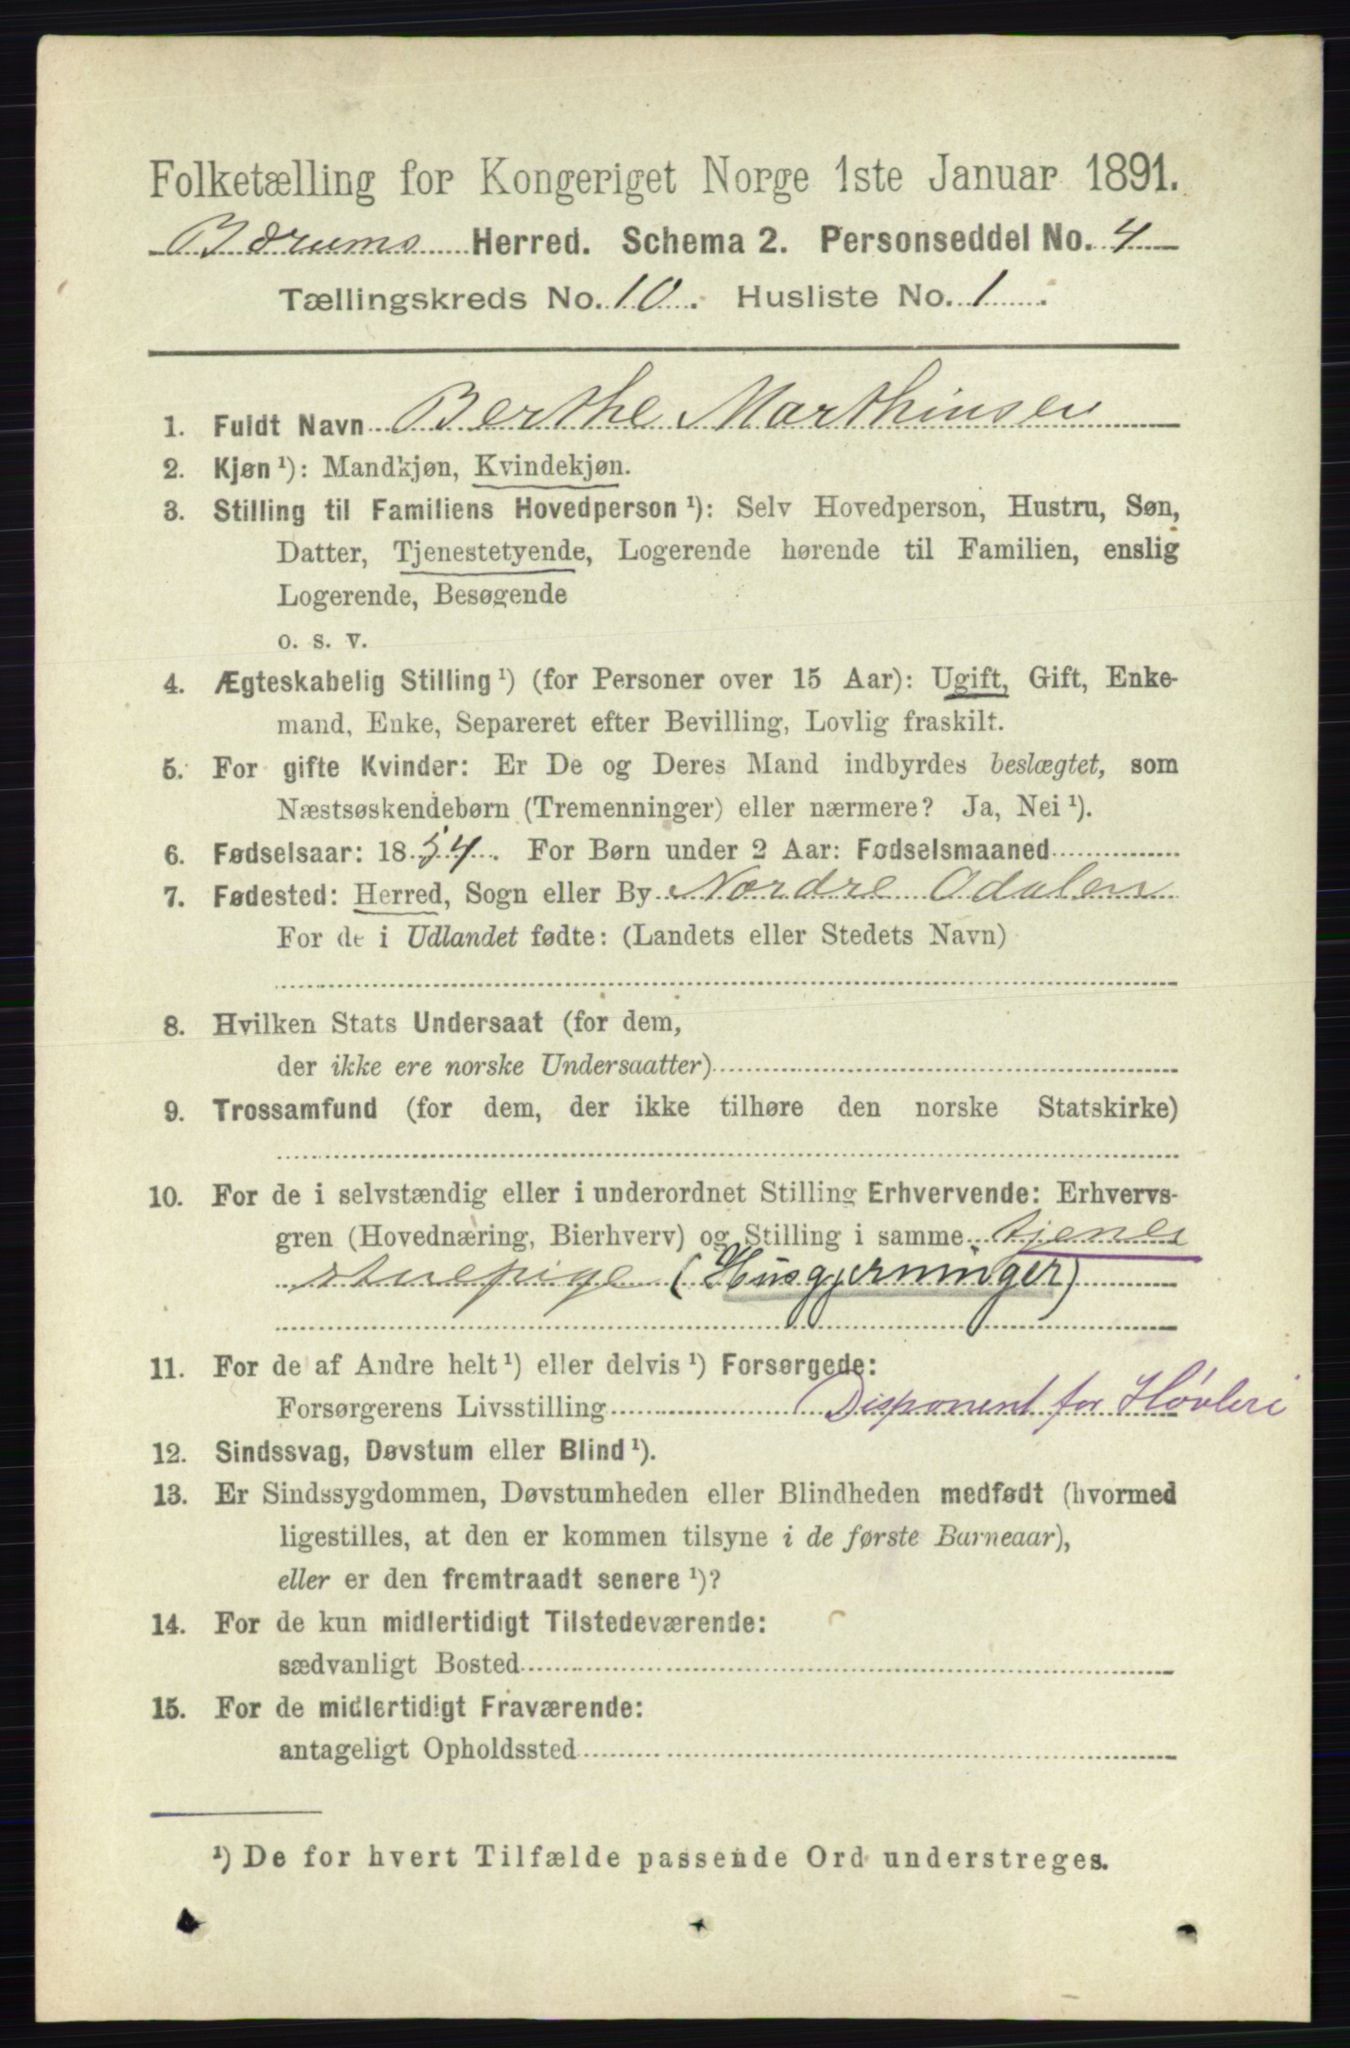 Folketælling for Kongeriget Norge 1ste Januar 1891.
Bærums Herred. Schema 2. Personseddel No. 4
Tællingskreds No. 10. Husliste No. 1.
1. Fuldt Navn Berthe Marthinsen
2. Kjøn ¹): Mandkjøn, Kvindekjøn.
3. Stilling til Familiens Hovedperson ¹): Selv Hovedperson, Hustru, Søn,
Datter, Tjenestetyende, Logerende hørende til Familien, enslig
Logerende, Besøgende
o. s. v.
4. Ægteskabelig Stilling ¹) (for Personer over 15 Aar): Ugift, Gift, Enke-
mand, Enke, Separeret efter Bevilling, Lovlig fraskilt.
5. For gifte Kvinder: Er De og Deres Mand indbyrdes beslægtet, som
Næstsøskendebørn (Tremenninger) eller nærmere? Ja, Nei ¹).
6. Fødselsaar: 1854. For Børn under 2 Aar: Fødselsmaaned
7. Fødested: Herred, Sogn eller By Nordre Odalen
For de i Udlandet fødte: (Landets eller Stedets Navn)
8. Hvilken Stats Undersaat (for dem,
der ikke ere norske Undersaatter)
9. Trossamfund (for dem, der ikke tilhøre den norske Statskirke)
10. For de i selvstændig eller i underordnet Stilling Erhvervende: Erhvervs-
gren (Hovednæring, Bierhverv) og Stilling i samme tjener
stuepige (Husgjerninger)
11. For de af Andre helt ¹) eller delvis ¹) Forsørgede:
Forsørgerens Livsstilling Disponent for Høvleri
12. Sindssvag, Døvstum eller Blind ¹).
13. Er Sindssygdommen, Døvstumheden eller Blindheden medfødt (hvormed
ligestilles, at den er kommen tilsyne i de første Barneaar),
eller er den fremtraadt senere ¹)?
14. For de kun midlertidigt Tilstedeværende:
sædvanligt Bosted
15. For de midlertidigt Fraværende:
antageligt Opholdssted
¹) De for hvert Tilfælde passende Ord understreges.